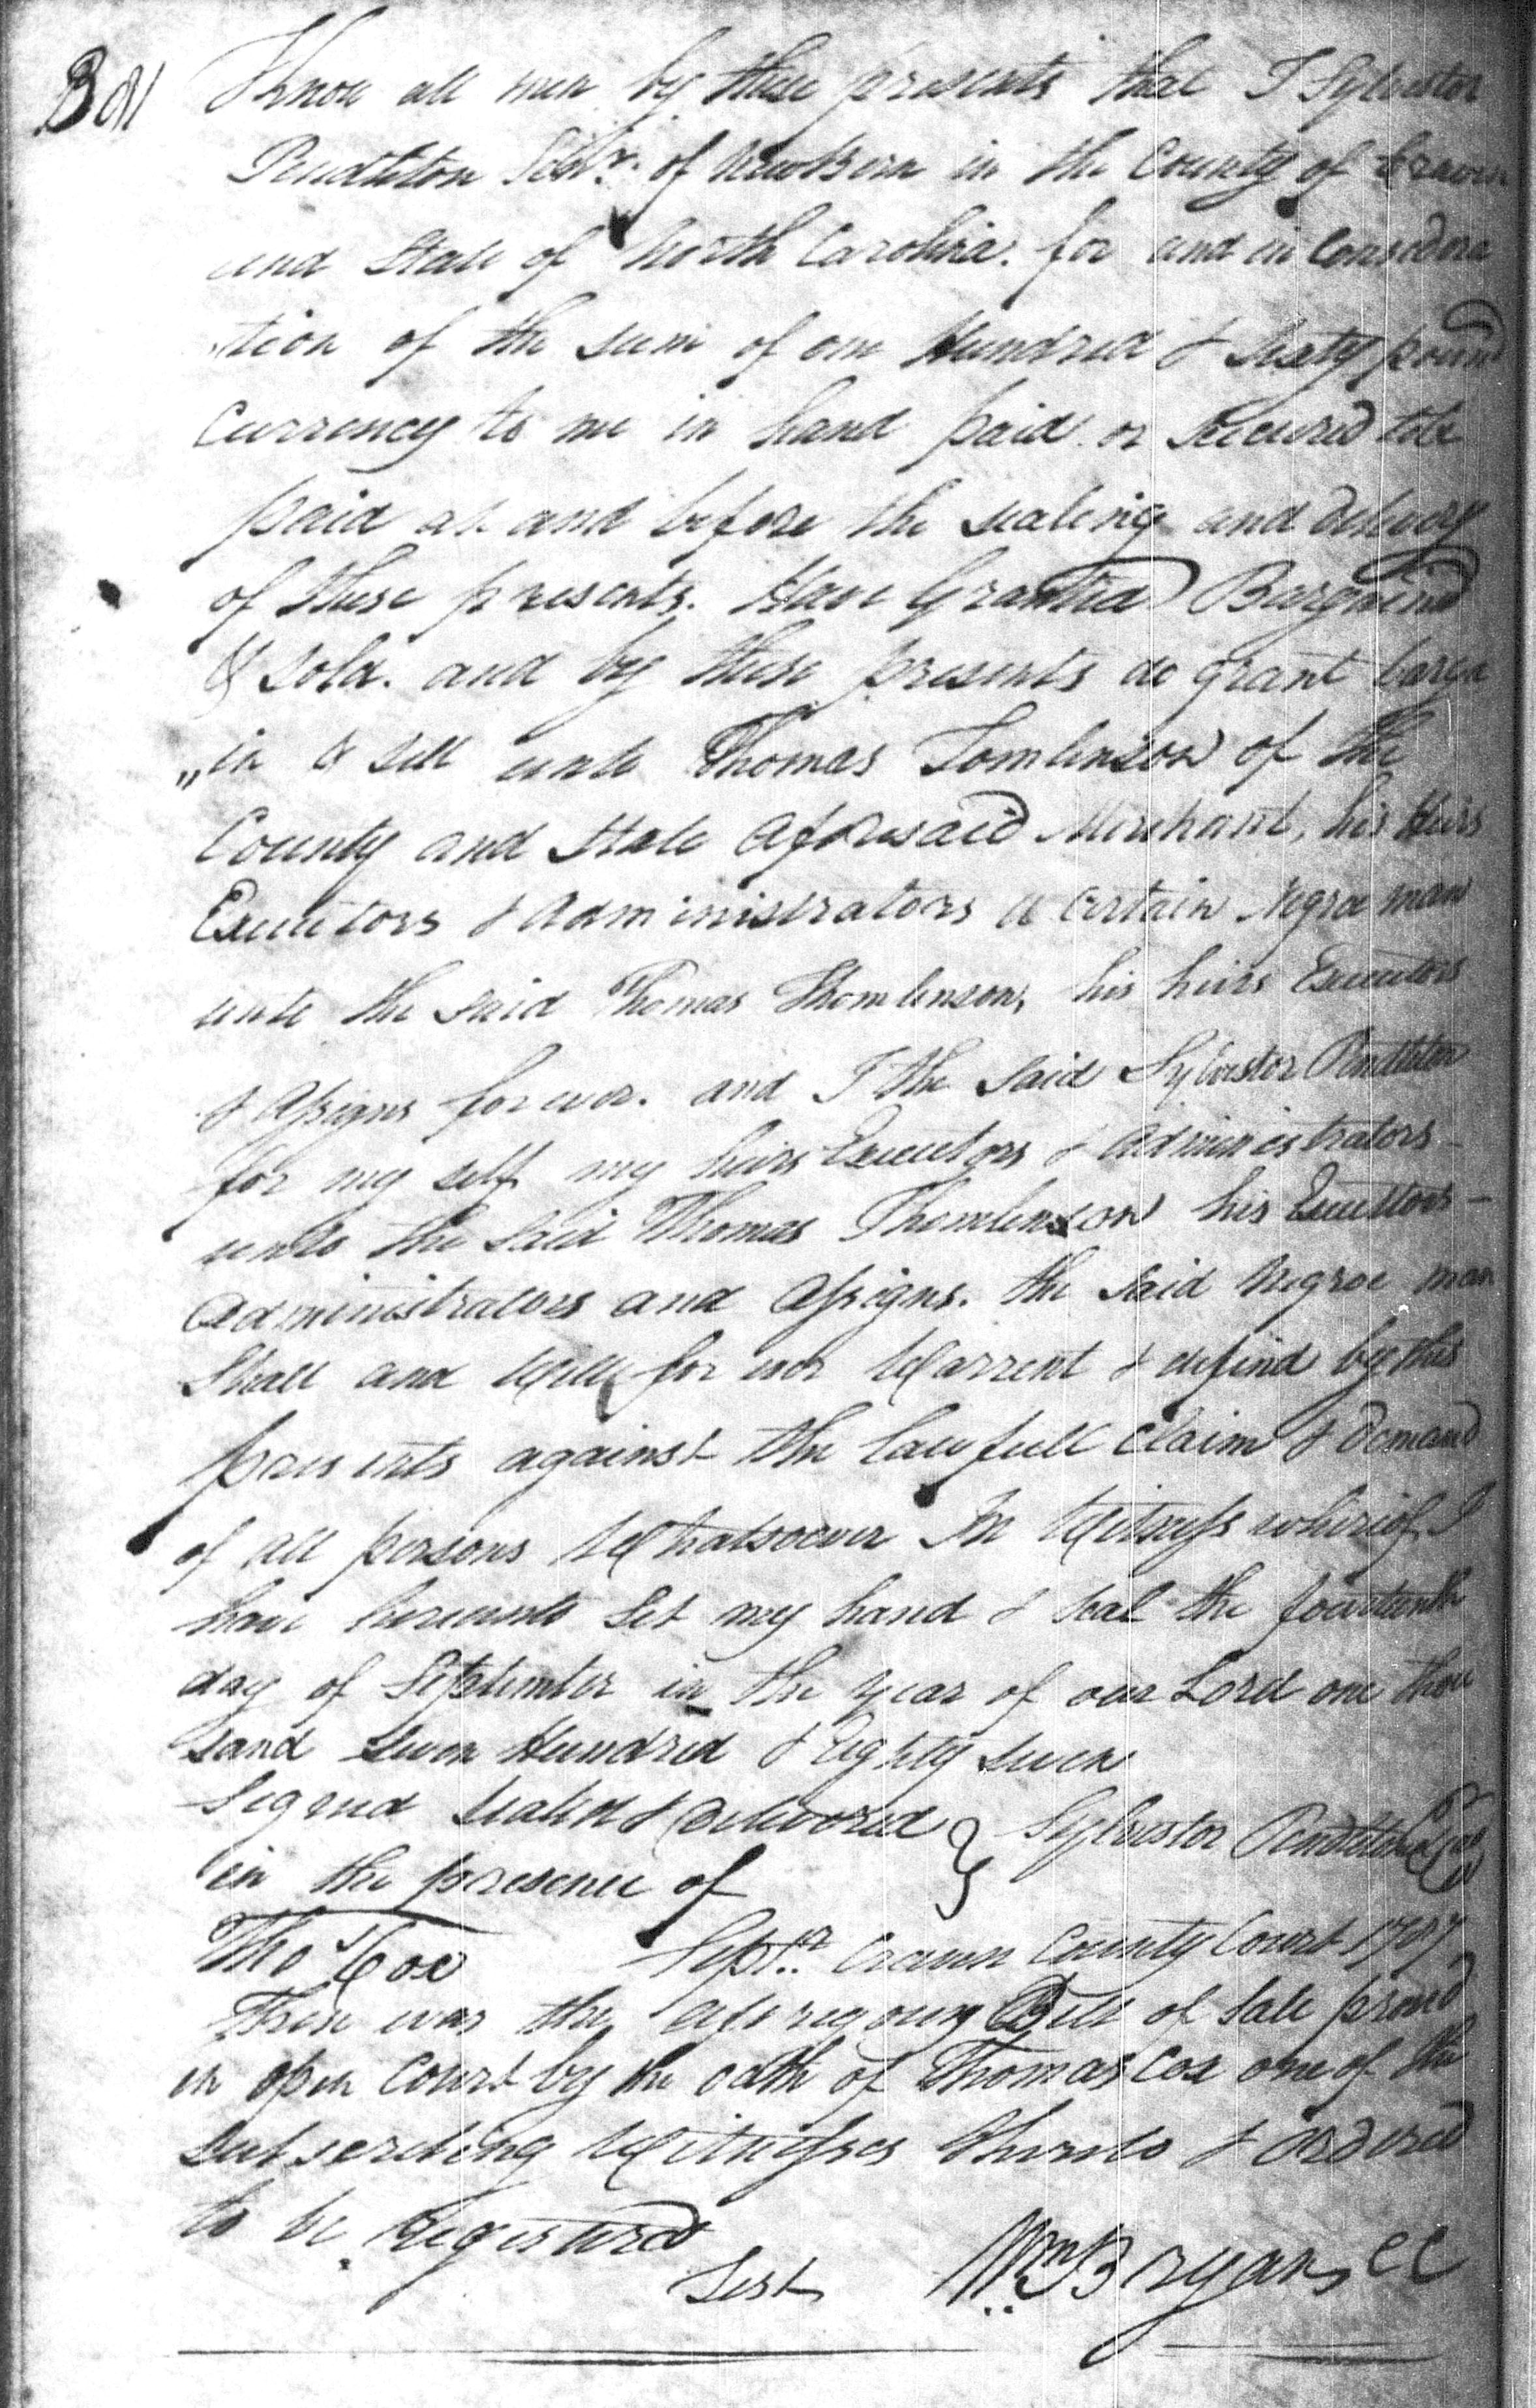 Know all men by these presents that I Sylvestor
Pendleton Senr. of NewBern in the County of Craven
and State of North Carolina. for and in Considera
tion of the sum of one Hundred & Sixty pound
Currency to me in hand paid or secured tobe
paid at and before the sealing and delivery
of these presents. Have Granted Bargained
& sold. and by these presents do grant barga
„in & sell unto Thomas Tomlinson of the
County and State aforesaid Merchant, his Heirs
Executors & Administrators a certain Negroe man
unto the said Thomas Thomlinson, his heirs Executors
& assigns forever. and I the said Sylvestor Pendleton
for my self my heirs Executors & Administrators
unto the said Thomas Thomlinson his Executors
Administrators and assigns. the said Negroe man
Shall and Will for ever Warrent & defend by this
presents against the lawfull claim & demand
of all persons Whatsoever In Witness whereof I
have hereunto set my hand & seal the fourteenth
day of September in the year of our Lord one thou
sand seven Hundred & Eighty seven
Signed sealed & delivored } Sylvestor Pendleton Seal
in the presence of
Thos Cox Septr. Craven County Court 1787
Then was the aforegoing Bill of Sale proved
in open Court by the oath of Thomas Cox one of the
subscribing Witnesses thereto & ordered
to be Registered
Test Wm Bryan, CC